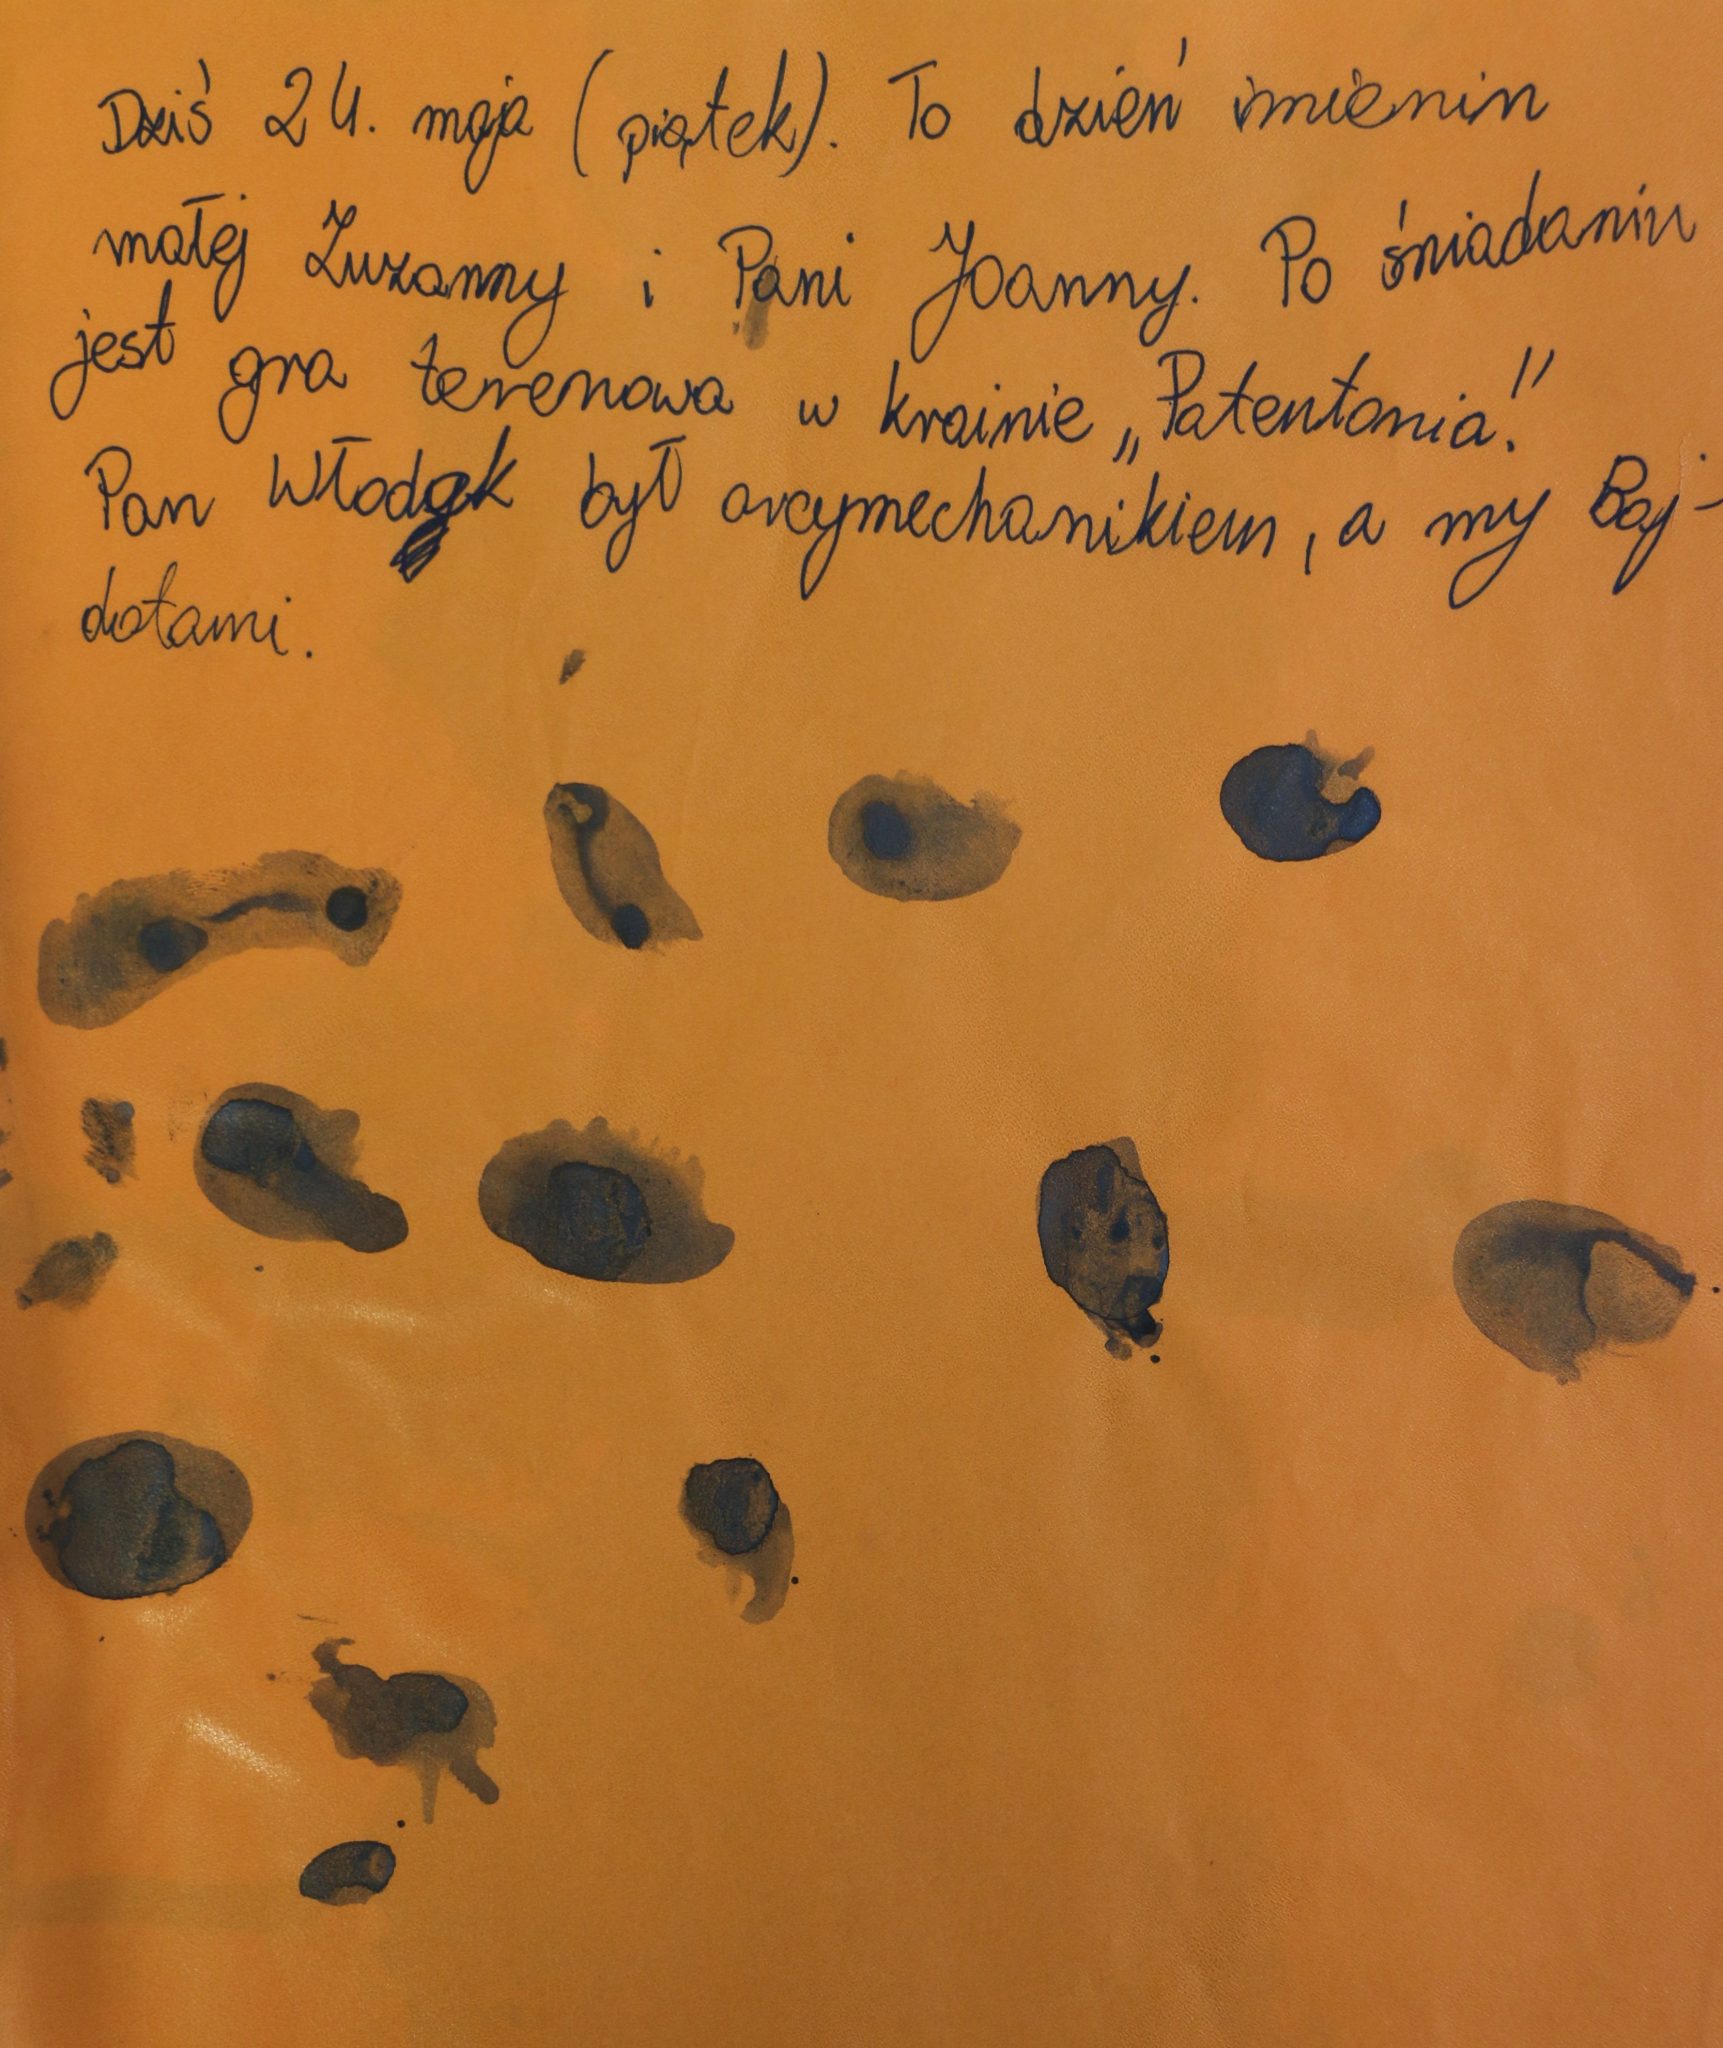 Dziś 24. maja (piątek). To dzień imienin
małej Zuzanny i Pani Joanny. Po śniadaniu
jest gra terenowa w krainie „Patentonia!”
Pan Włodek był arcymechanikiem, a my Baj-
dotami.